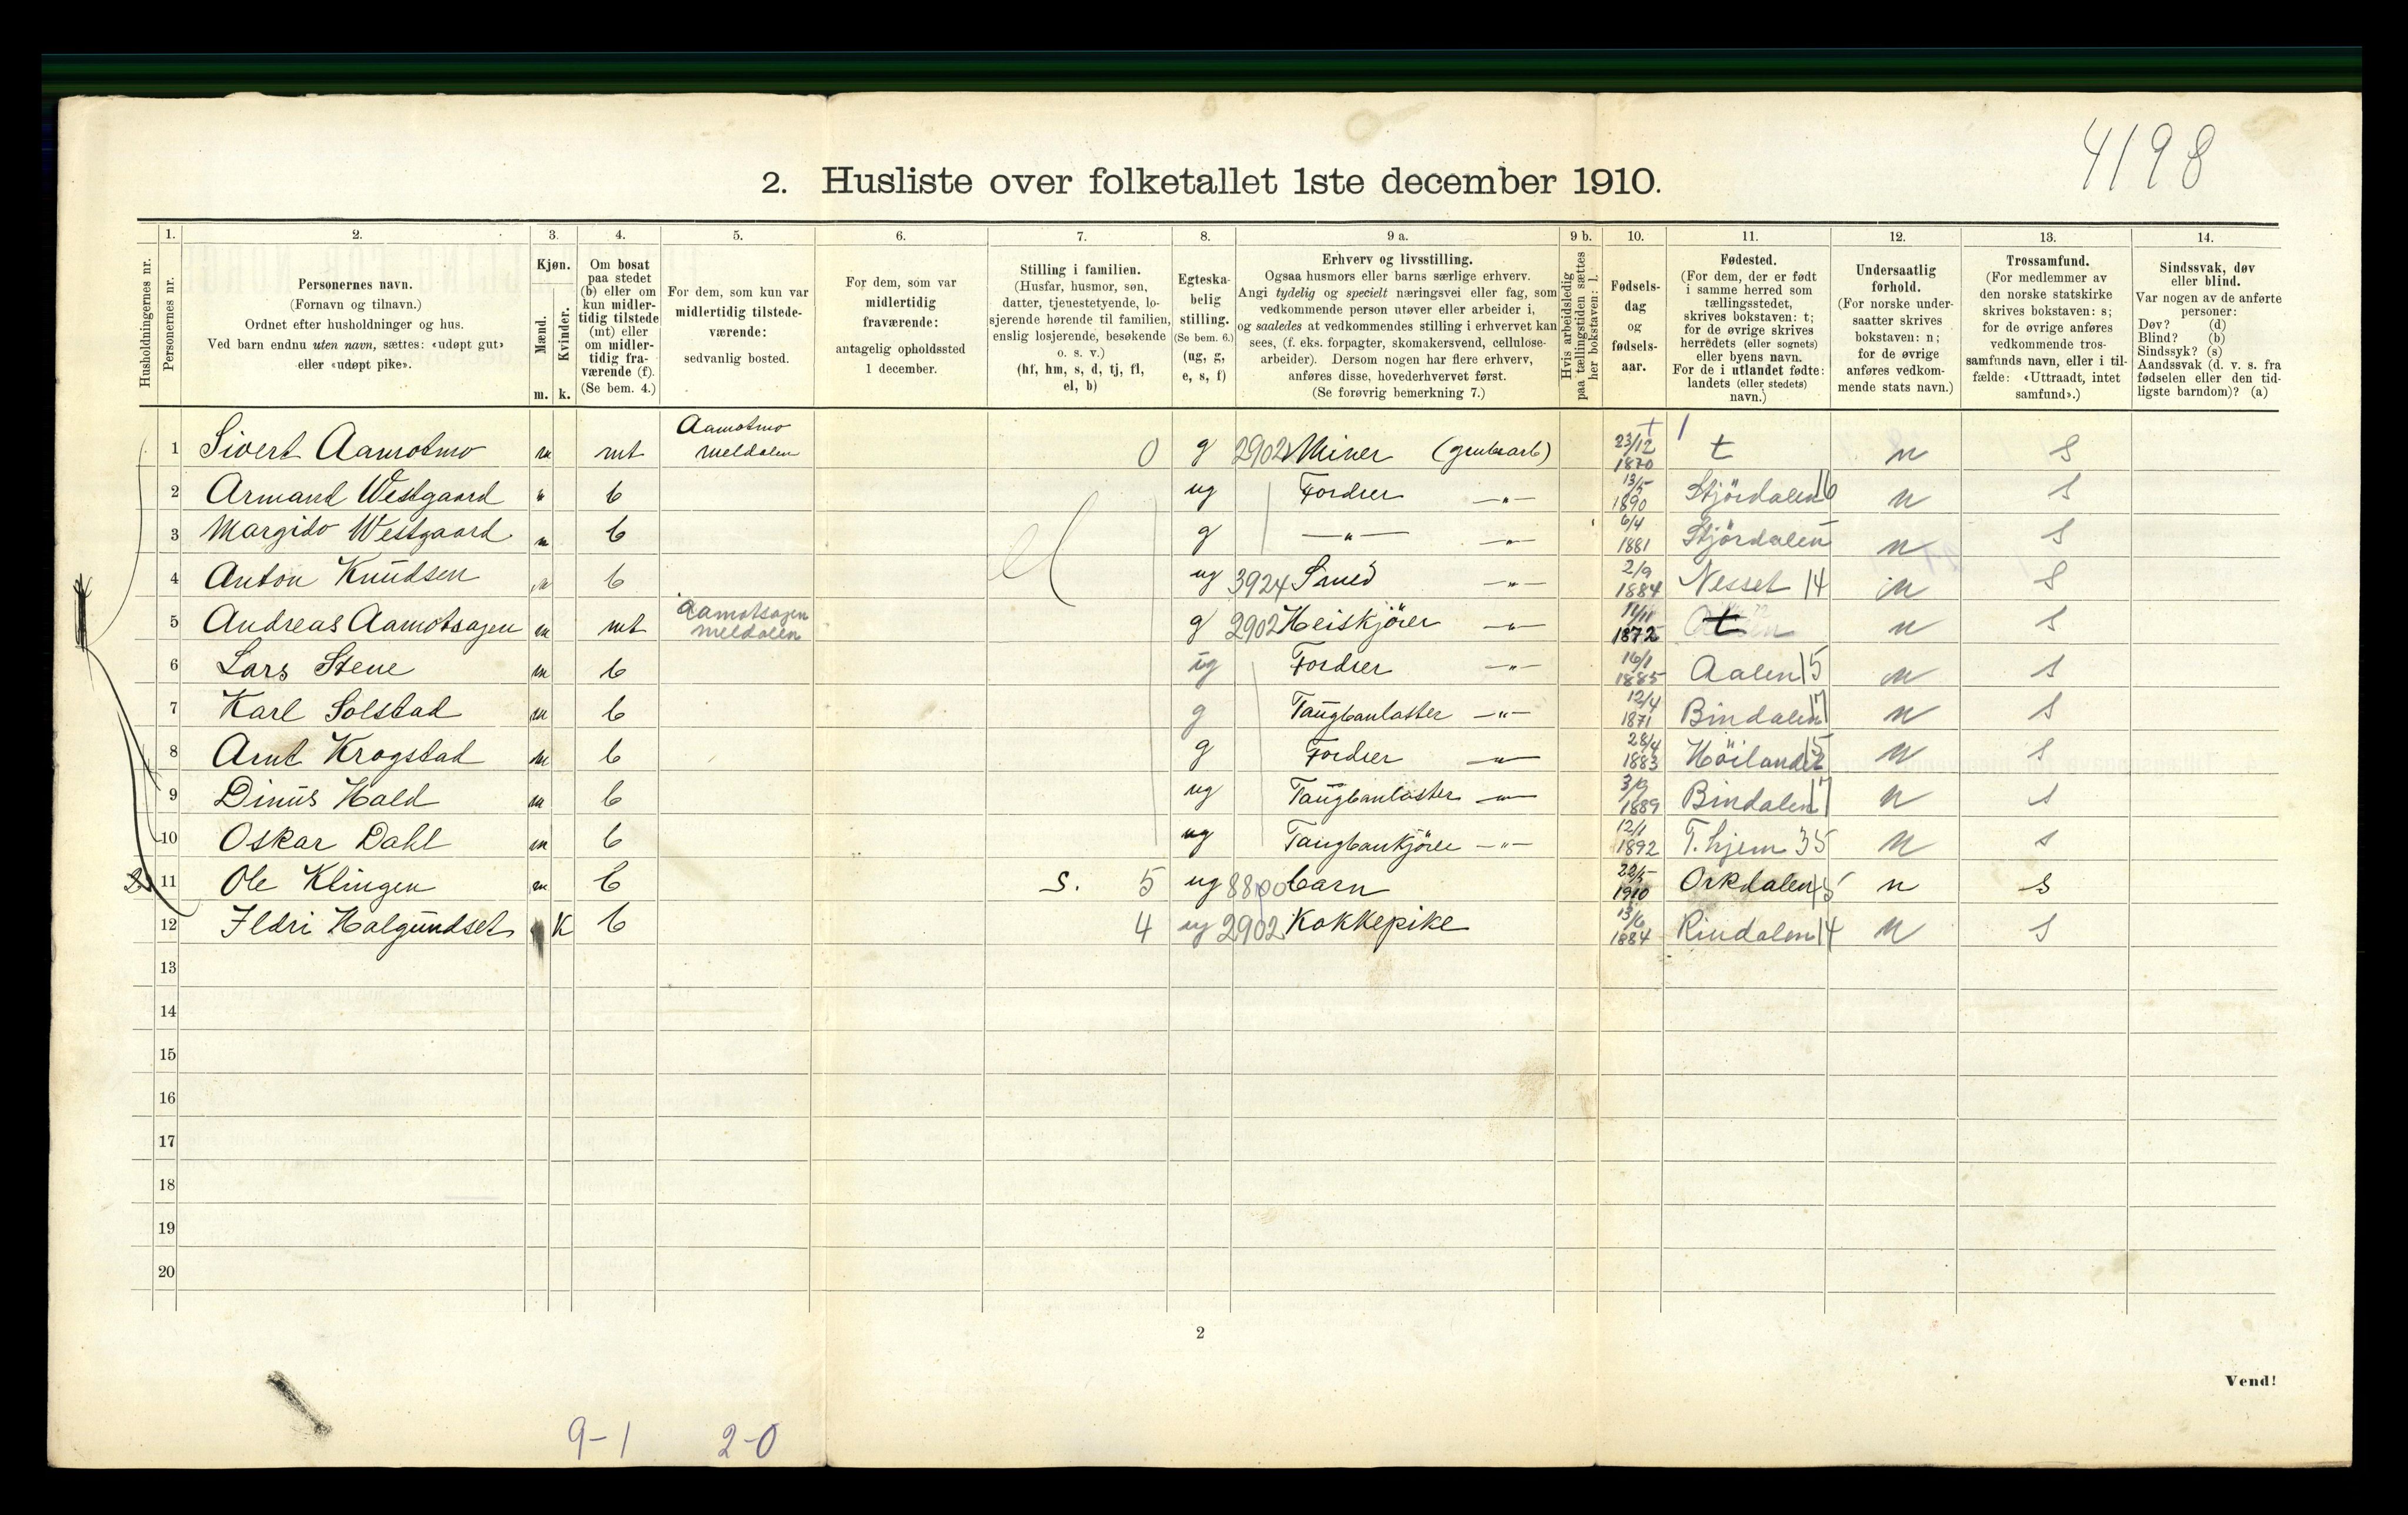 4198
2. Husliste over folketallet 1ste december 1910.
Husholdningernes nr.
1. Personernes nr.
2. Personernes navn.
(Fornavn og tilnavn.)
Ordnet efter husholdninger og hus.
Ved barn endnu uten navn, sættes: «udøpt gut»
eller «udøpt pike».
3. Kjøn.
Mænd. Kvinder.
m. k.
4. Om bosat
paa stedet
(b) eller om
kun midler-
tidig tilstede
(mt) eller
om midler-
tidig fra-
værende (f).
(Se bem. 4.)
5. For dem, som kun var
midlertidig tilstede-
værende:
sedvanlig bosted.
6. For dem, som var
midlertidig
fraværende:
antagelig opholdssted
1 december.
7. Stilling i familien.
(Husfar, husmor, søn,
datter, tjenestetyende, lo-
sjerende hørende til familien,
enslig losjerende, besøkende
o. s. v.)
(hf, hm, s, d, tj, fl,
el, b)
8. Egteska-
belig
stilling.
(Se bem. 6.)
(ug, g,
e, s, f)
9 a. Erhverv og livsstilling.
Ogsaa husmors eller barns særlige erhverv.
Angi tydelig og specielt næringsvei eller fag, som
vedkommende person utøver eller arbeider i,
og saaledes at vedkommendes stilling i erhvervet kan
sees, (f. eks. forpagter, skomakersvend, cellulose-
arbeider). Dersom nogen har flere erhverv,
anføres disse, hovederhvervet først.
(Se forøvrig bemerkning 7.)
9 b. Hvis arbeidsledig
paa tællingstiden sættes
her bokstaven: l.
10. Fødsels-
dag
og
fødsels-
aar.
11. Fødested.
(For dem, der er født
i samme herred som
tællingsstedet,
skrives bokstaven: t;
for de øvrige skrives
herredets (eller sognets)
eller byens navn.
For de i utlandet fødte:
landets (eller stedets)
navn.)
12. Undersaatlig
forhold.
(For norske under-
saatter skrives
bokstaven: n;
for de øvrige
anføres vedkom-
mende stats navn.)
13. Trossamfund.
(For medlemmer av
den norske statskirke
skrives bokstaven: s;
for de øvrige anføres
vedkommende tros-
samfunds navn, eller i til-
fælde: «Uttraadt, intet
samfund».)
14. Sindssvak, døv
eller blind.
Var nogen av de anførte
personer:
Døv? (d)
Blind? (b)
Sindssyk? (s)
Aandssvak (d. v. s. fra
fødselen eller den tid-
ligste barndom)? (a)
1 Sivert Aamotmo m mt Aamotmo Meldalen 0 g 2902 Miner (grubearb) 23/12 1870 t n s
2 Armand Westgaard " b ug Fordrer —"— 13/5 1890 Stjördalen 16 n s
3 Margido Westgaard m b el g —"— —"— 6/4 1881 Stjördalen n s
4 Anton Knudsen m b ug 3924 Smed —"— 2/9 1884 Nesset 14 n s
5 Andreas Aamotsagen m mt Aamotsagen Meldalen g 2902 Heiskjörer —"— 11/11 1872 t n s
6 Lars Stene m b ug Fordrer —"— 16/1 1885 Aalen 15 n s
7 Karl Solstad m b g Taugbanlaster —"— 12/4 1871 Bindalen 17 n s
8 Arnt Krogstad m b g Fordrer —"— 28/4 1883 Höilandet n s
9 Dinus Hald m b ug Taugbanlaster —"— 3/9 1889 Bindalen 17 n s
10 Oskar Dahl m b ug Taugbankjörer —"— 12/1 1892 T.hjem 35 n s
2 11 Ole Klingen m b s. 5 ug 8800 barn 22/5 1910 Orkdalen 15 n s
12 Ildri Halgundset K b 4 ug 2902 Kokkepike 13/6 1884 Rindalen 14 n s
13
14
15
16
17
18
19
20
2
Vend!
9-1 2-0